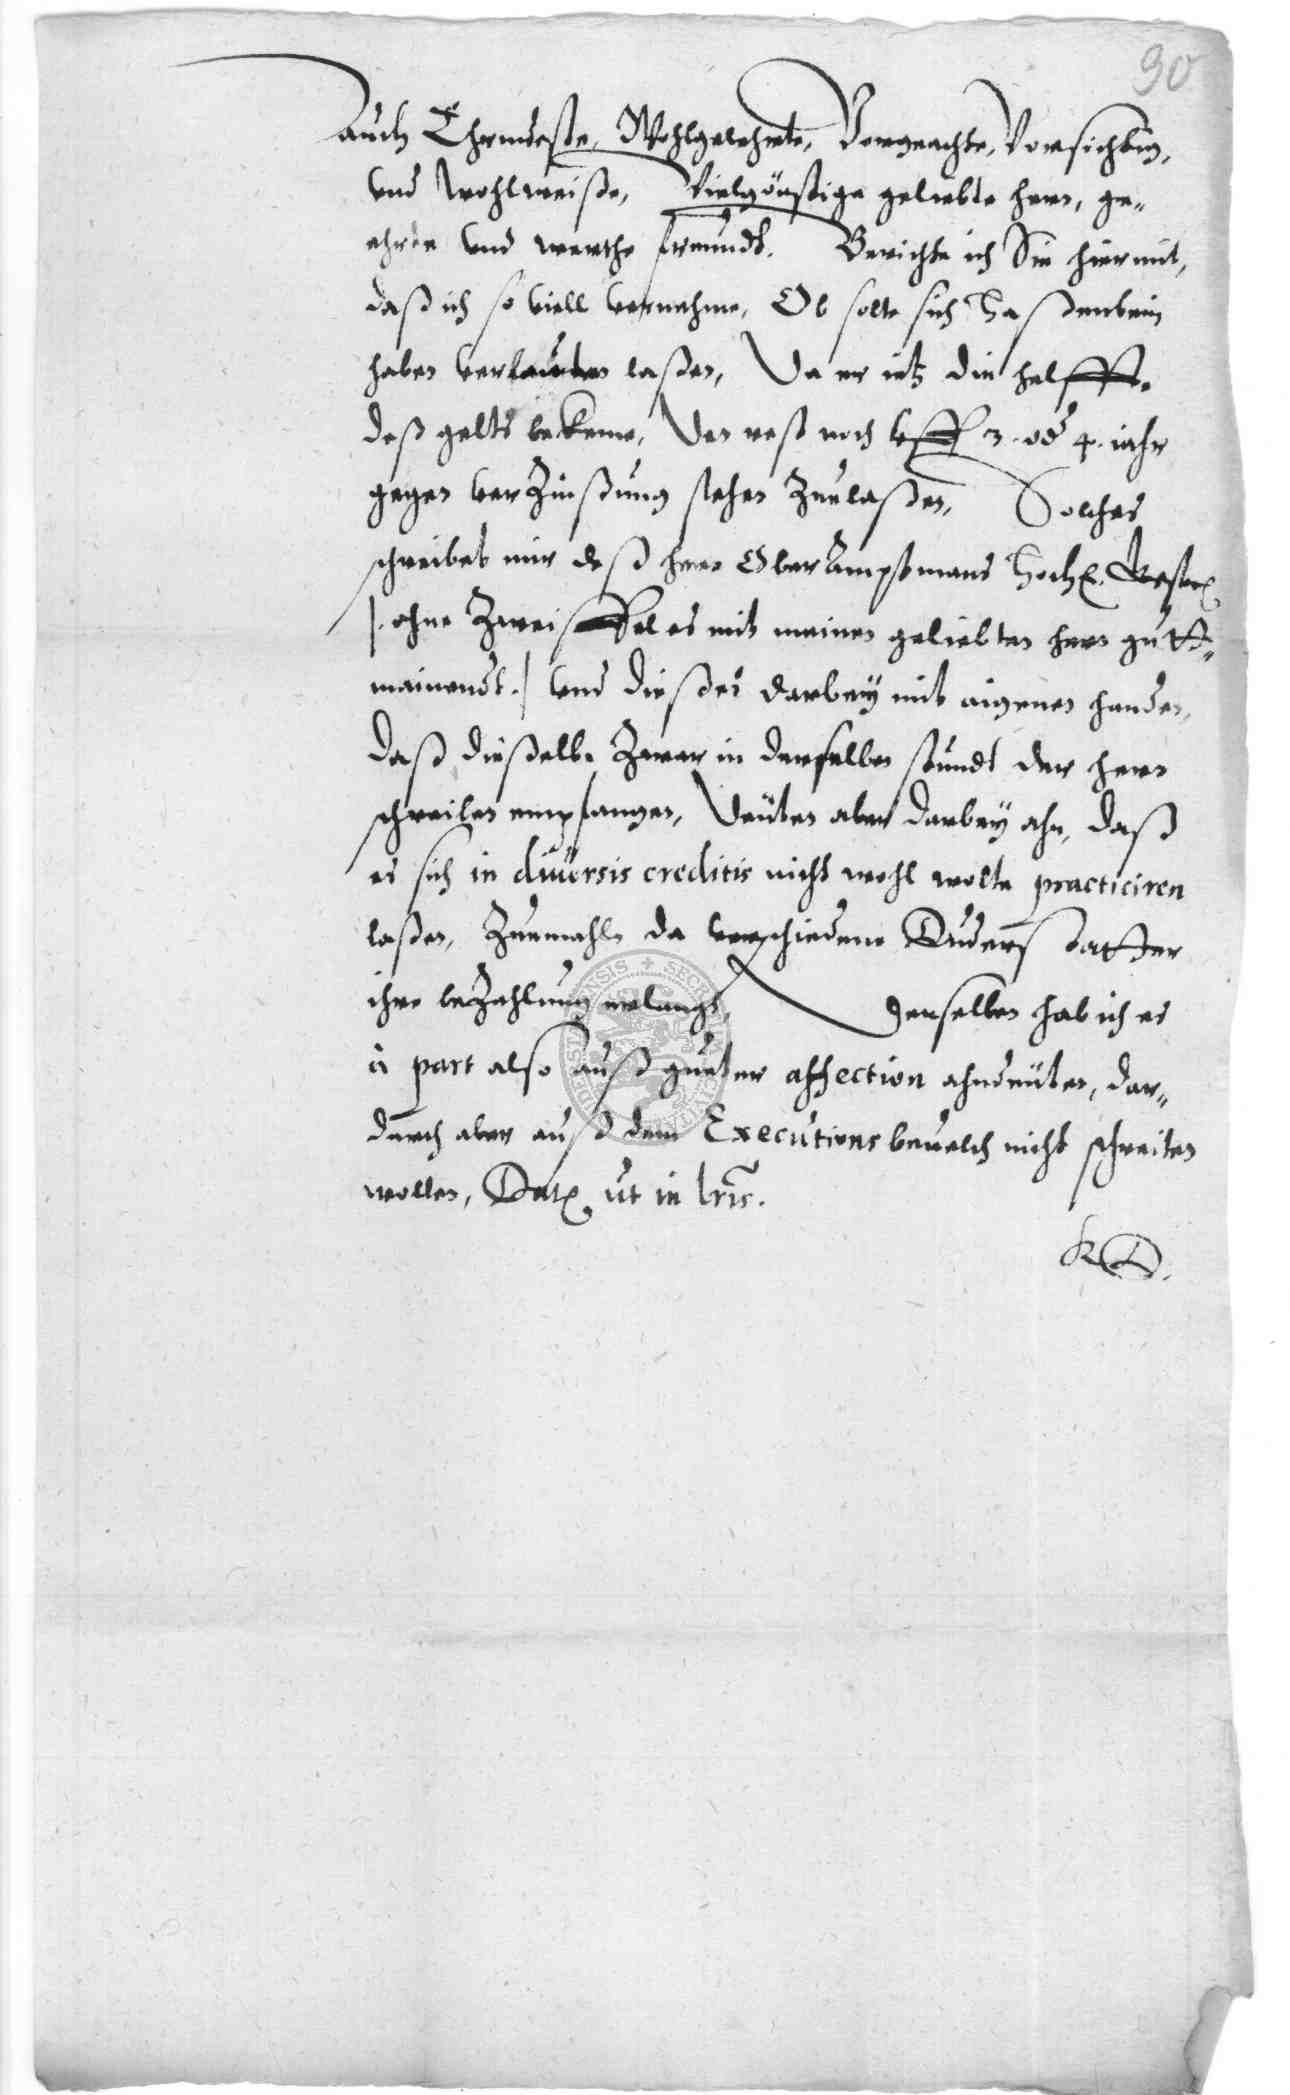 90
Auch Ehrnveste, Wohlgelehrte, Vorgeachte, Vorsichtig,
vnd Wohlweiße, Vielgönstige geliebte herrn, ge„
ehrte vnd werthe freundt. Berichte ich Sie hiermit,
daß ich so viell vernehme, Ob solte sich Haßenbein
haben verlauten laßen, Da er ietz die helffte
deß gelts bekeme, Den rest noch vff 3. od 4. iahr
gegen verZinßung stehen Zuelaßen, Solches
schreibet mir deß herrn OberAmptmans Hoch
/. ohne Zweiffel es mit meinen geliebten herrn gutt„
mainendt ./ vnd dießes darbey mit aigenen handen,
daß dießelbe Zwar in derselben stundt der herrn
schreiben empfangen, Deuten aber darbey ahn, daß
es sich in diuersis creditis nicht wohl wolte practiciren
laßen, Zuemahln da verschiedene datter
ihre beZahlung erlangt, Denselben hab ich es
à part also auß gueter affection ahndeuten, dar„
durch aber auß dem Executions beuelch nicht schreiten
wollen, Dat ut in lris.
KD.